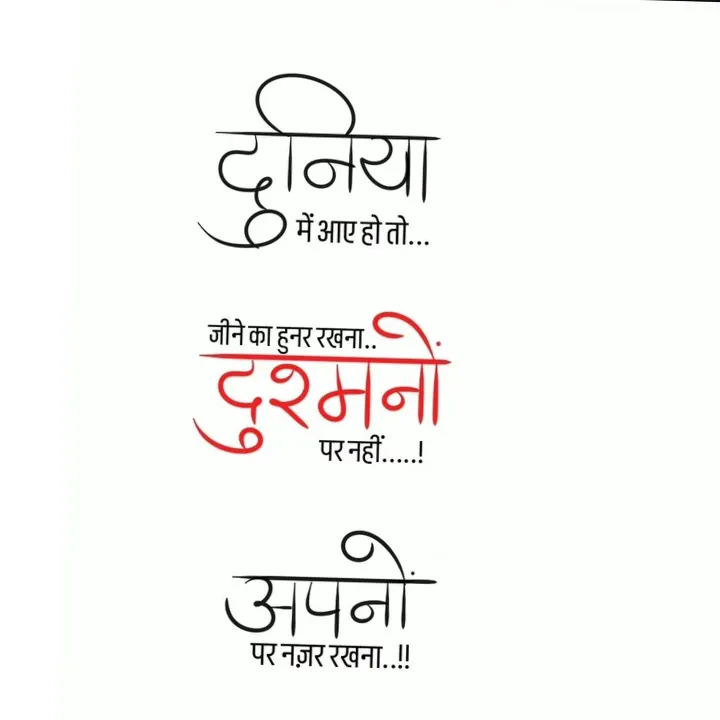 दुनिया
में आए हो तो...
जीने का हुनर रखना..
दुश्मनों
पर नहीं.....!
अपनों
पर नज़र रखना..!!